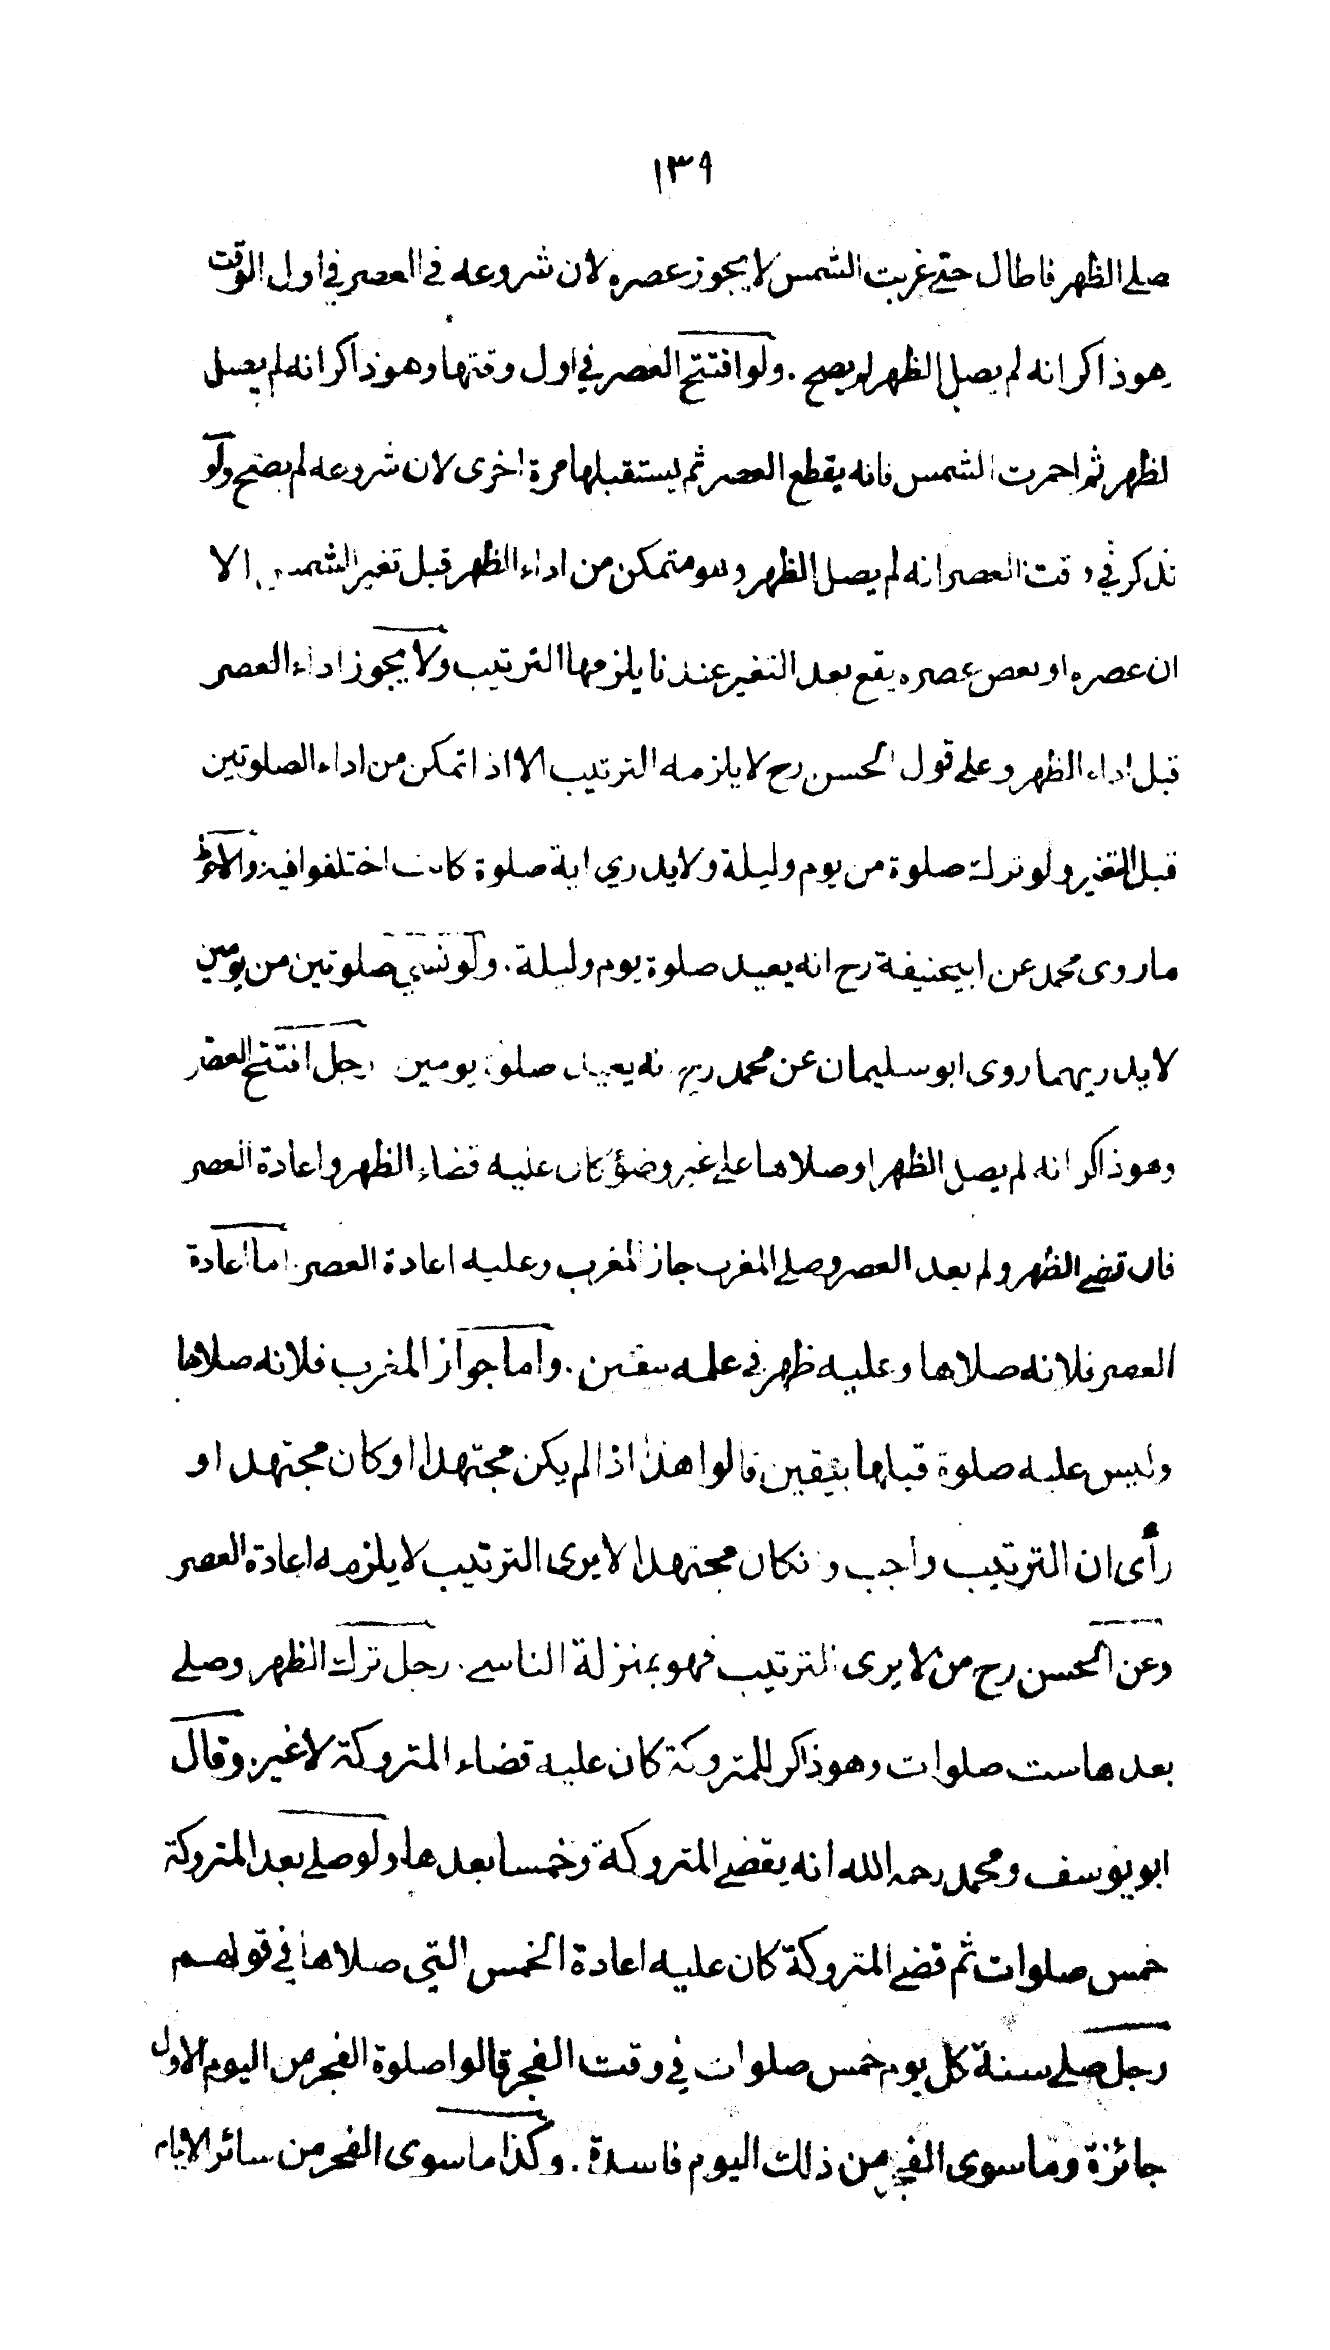 ١٣٩
صلى الظهر فاطال حتى غربت الشمس لا يجوز عصره لان شروعه في العصر في اول الوقت
وهو ذاكر انه لم يصل الظهر لم يصح . ولو افتتح العصر في اول وقتها وهو ذاكر انه لم يصل
لظهر ثم احمرت الشمس فانه يقطع العصر ثم يستقبلها مرة اخرى لان شروعه لم يصح ولو
تذكر في وقت العصر انه لم يصل الظهر وهو متمكن من اداء الظهر قبل تغير الشمس الا
ان عصره او بعض عصره يقع بعد التغير عندنا يلزمها الترتيب ولا يجوز اداء العصر
قبل اداء الظهر وعلى قول الحسن رح لا يلزمه الترتيب الا اذا تمكن من اداء الصلوتين
قبل التغير ولو ترك صلوة من يوم وليلة ولا يدري اية صلوة كانت اختلفوا فيه والاحوط
ما روى محمد عن ابيحنيفة رح انه يعيد صلوة يوم وليلة . ولو نسي صلوتين من يومين
لا يدريهما روى ابو سليمان عن محمد رح انه يعيد صلوة يومين رجل افتتح العصر
وهو ذاكر انه لم يصل الظهر او صلاها على غير وضوء كان عليه قضاء الظهر واعادة العصر
فان قضى الظهر ولم يعد العصر وصلى المغرب جاز المغرب وعليه اعادة العصر . اما اعادة
العصر فلانه صلاها وعليه ظهر في علمه بيقين . واما جواز المغرب فلانه صلاها
وليس عليه صلوة قبلها بيقين قالوا هذا اذا لم يكن مجتهدا او كان مجتهد او
رأى ان الترتيب واجب وانكان مجتهدا لا يرى الترتيب لا يلزمه اعادة العصر
وعن الحسن رح من لا يرى الترتيب فهو بمنزلة الناسي . رجل ترك الظهر وصلى
بعدها ست صلوات وهو ذاكر للمتروكة كان عليه قضاء المتروكة لا غير . وقال
ابو يوسف ومحمد رحمه الله انه يقضى المتروكة وخمسا بعدها ولو صلى بعد المتروكة
خمس صلوات ثم قضى المتروكة كان عليه اعادة الخمس التي صلاها في قولهم
رجل صلى سنة كل يوم خمس صلوات في وقت الفجر قالوا صلوة الفجر من اليوم الاول
جائزة وما سوى الفجر من ذلك اليوم فاسدة . وكذا ما سوى الفجر من سائر الايام